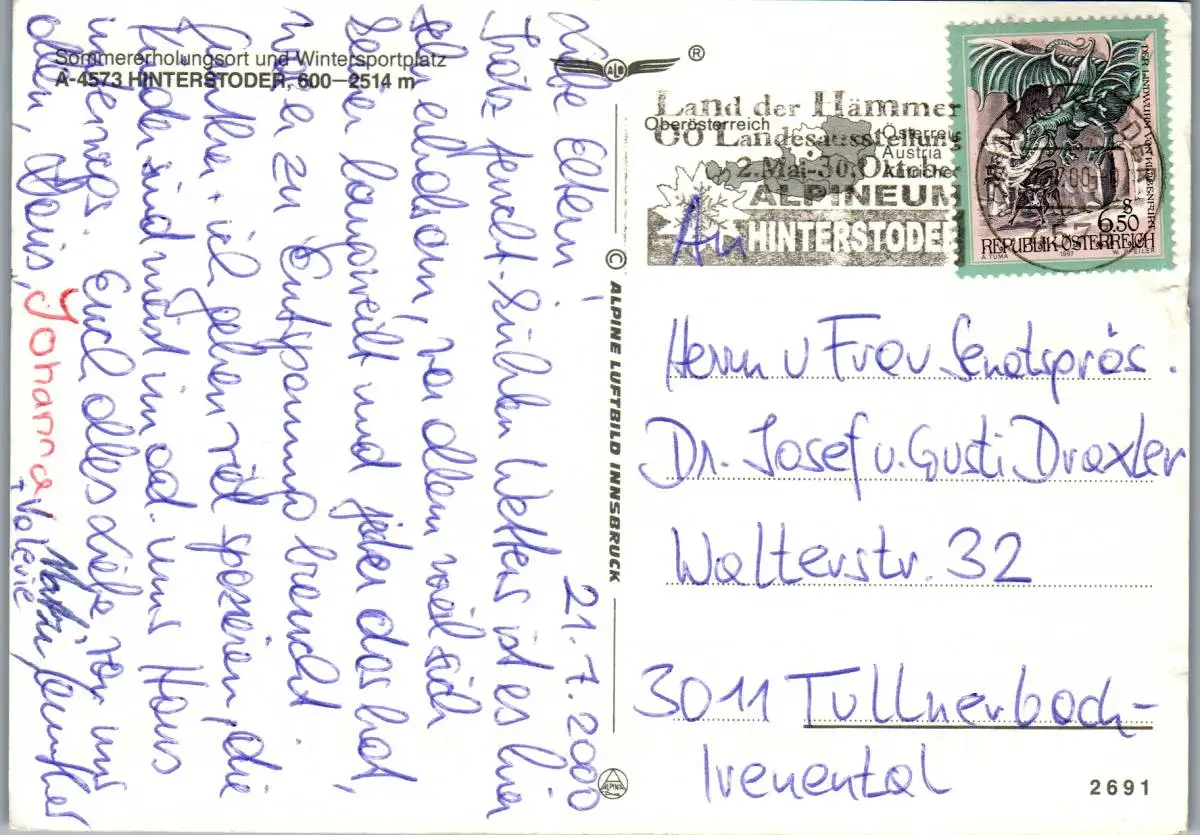 Sommererholungsort und Wintersportplatz
A-4573 HINTERSTODER, 600—2514 m
ALB
®
21.7.2000
Liebe Eltern!
Trotz feucht-kühlem Wetter ist es hier
sehr erholsam, vor allem weil sich
keiner langweilt und jeder das hat,
was er zu Entspannung braucht.
Günther + ich gehen viel spazieren, die
Kinder sind meist im od. ums Haus
unterwegs. Euch alles Liebe von uns
allen, Doris, Johanna
+ Valerie Martin Günther
© ALPINE LUFTBILD INNSBRUCK
Land der Hämmer
Oberösterreich
OÖ Landesausstellung
Österreich
Austria
Autriche
2.Mai-30.Oktober
ALPINEUM
HINTERSTODER
DER LINDWURM VON KLAGENFURT
S
6.50
REPUBLIK ÖSTERREICH
A. TUMA 1997
An
Herrn u Frau Senatspräs.
Dr. Josef u. Gusti Draxler
Walterstr. 32
3011 Tullnerbach-
Irenental
2691